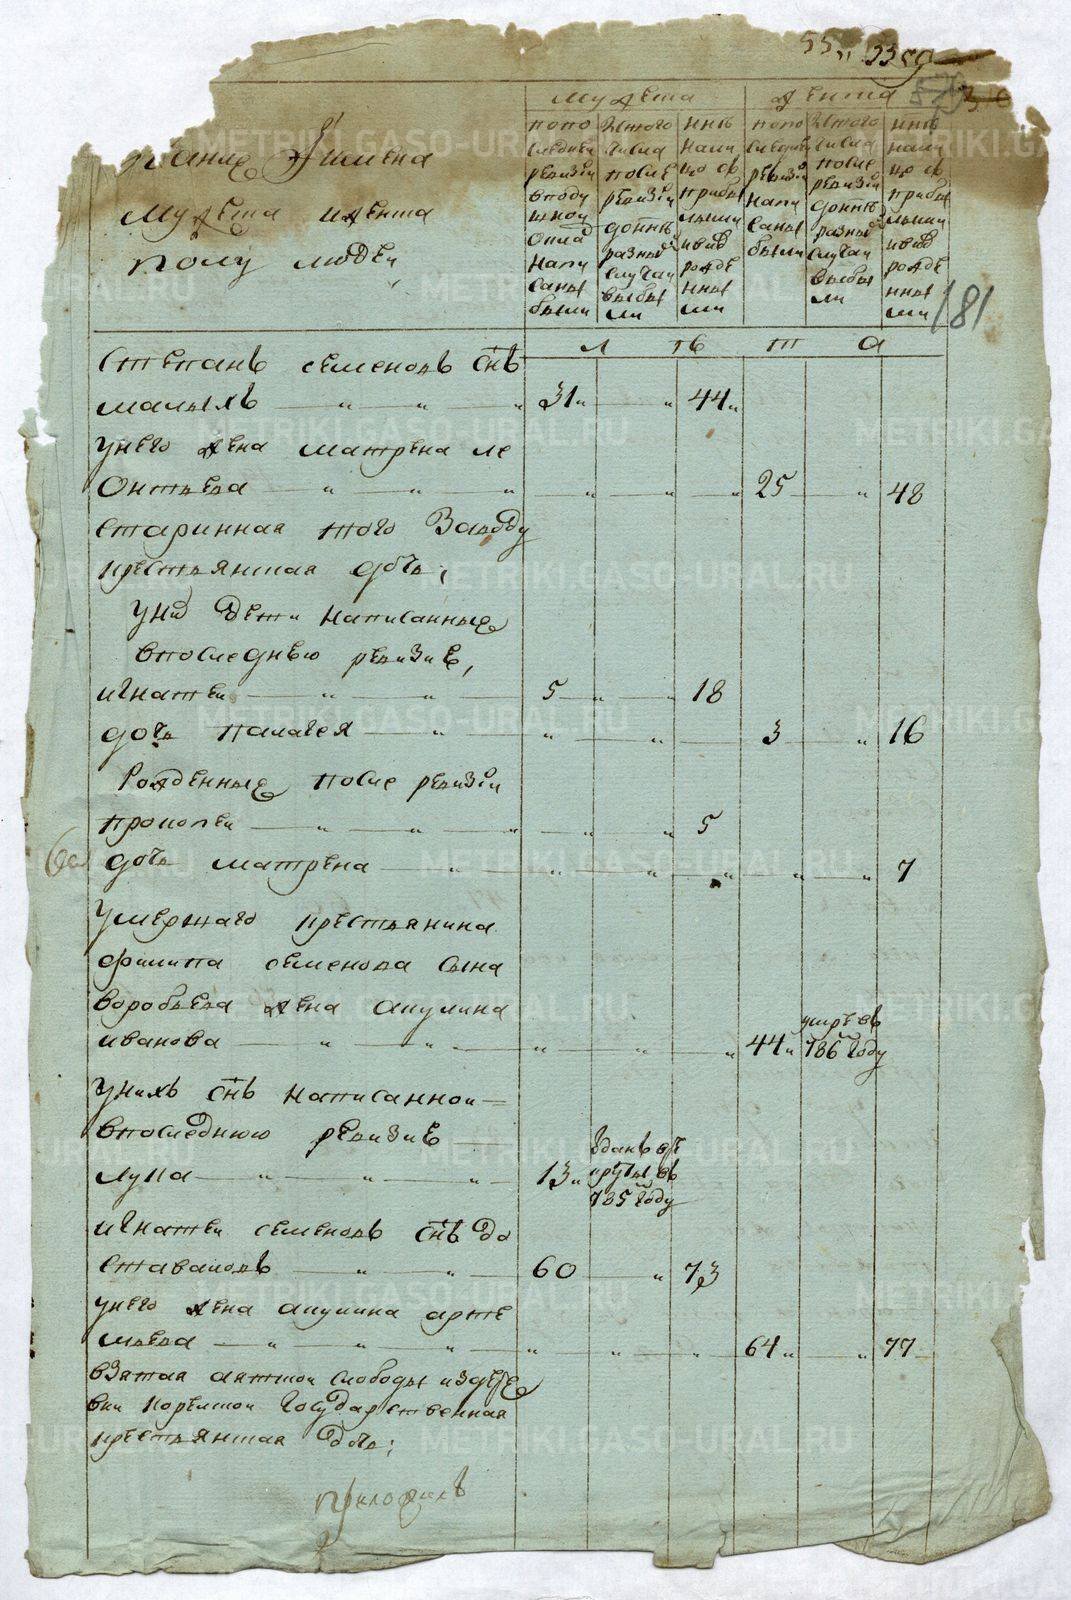 55
181
мужеска
женска
звание и имена
мужеска и женска
полу людей
попо
следней
ревизии
в поду
шной
оклад
напи
саны
были
из того
числа
после
ревизии
до нне
разны
случаи
выбы
ли
нне
нали
цо съ
прибы
лыми
и вно
рожде
нны
ми
попо
следней
ревизии
напи
саны
были
из того
числа
после
ревизии
до нне
разны
случаи
выбы
ли
нне
нали
цо съ
прибы
лыми
и вно
рожде
нны
ми
л ѣ т а
степанъ семеновъ снъ
малыхъ 31 44
у него жена матрена ле
онтьева 25 48
старинная того заводу
крестьянская дочь;
у них дети написанные
в последнею ревизие,
игнатеи 5 18
дочь палагея 3 16
рожденные после ревизии
прокопеи 5
дочь матрена 7
умершаго крестьянина
филипа семенова сына
воробьева жена акулина
иванова 44 умре въ 786 году
у нихъ снъ написаннои
в последнюю ревизие
лука 13 зданъ в рекруты въ 785 году
игнатеи семеновъ снъ до
ставаловъ 60 73
у него жена акулина арте
мьева 64 77
взятая аятской слободы из дере
вни корелской государственная
крестьянская дочь;